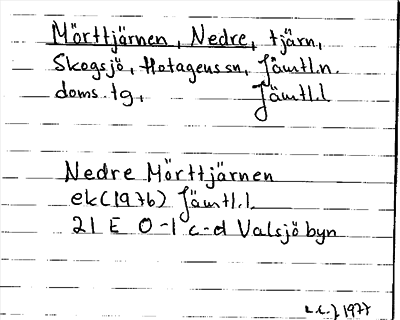 Mörttjärnen, Nedre, tjärn,
Skogsjö, Hotagens sn, Jämtl.n.
doms. tg, Jämtl.l
Nedre Mörttjärnen
ek (1976) Jämtl.l.
21 E 0-1 c-d Valsjöbyn
1977